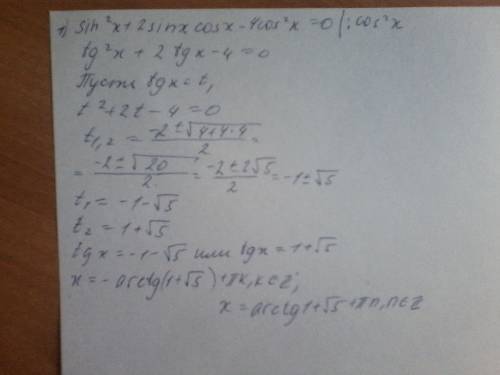 1) sin²x + 2sinx cosx - 4cos²x = 0 | : cos²x
tg²x + 2 tgx - 4 = 0
Пусть tgx = t,
t² + 2t - 4 = 0
t₁,₂ = (-2 ± √(4+4·4))/2 =
= (-2 ± √20)/2 = (-2 ± 2√5)/2 = -1 ± √5
t₁ = -1 - √5
t₂ = 1 + √5
tgx = -1 - √5 или tgx = 1 + √5
x = -arctg(1+√5) + πk, k∈Z;
x = arctg 1 + √5 + πn, n∈Z